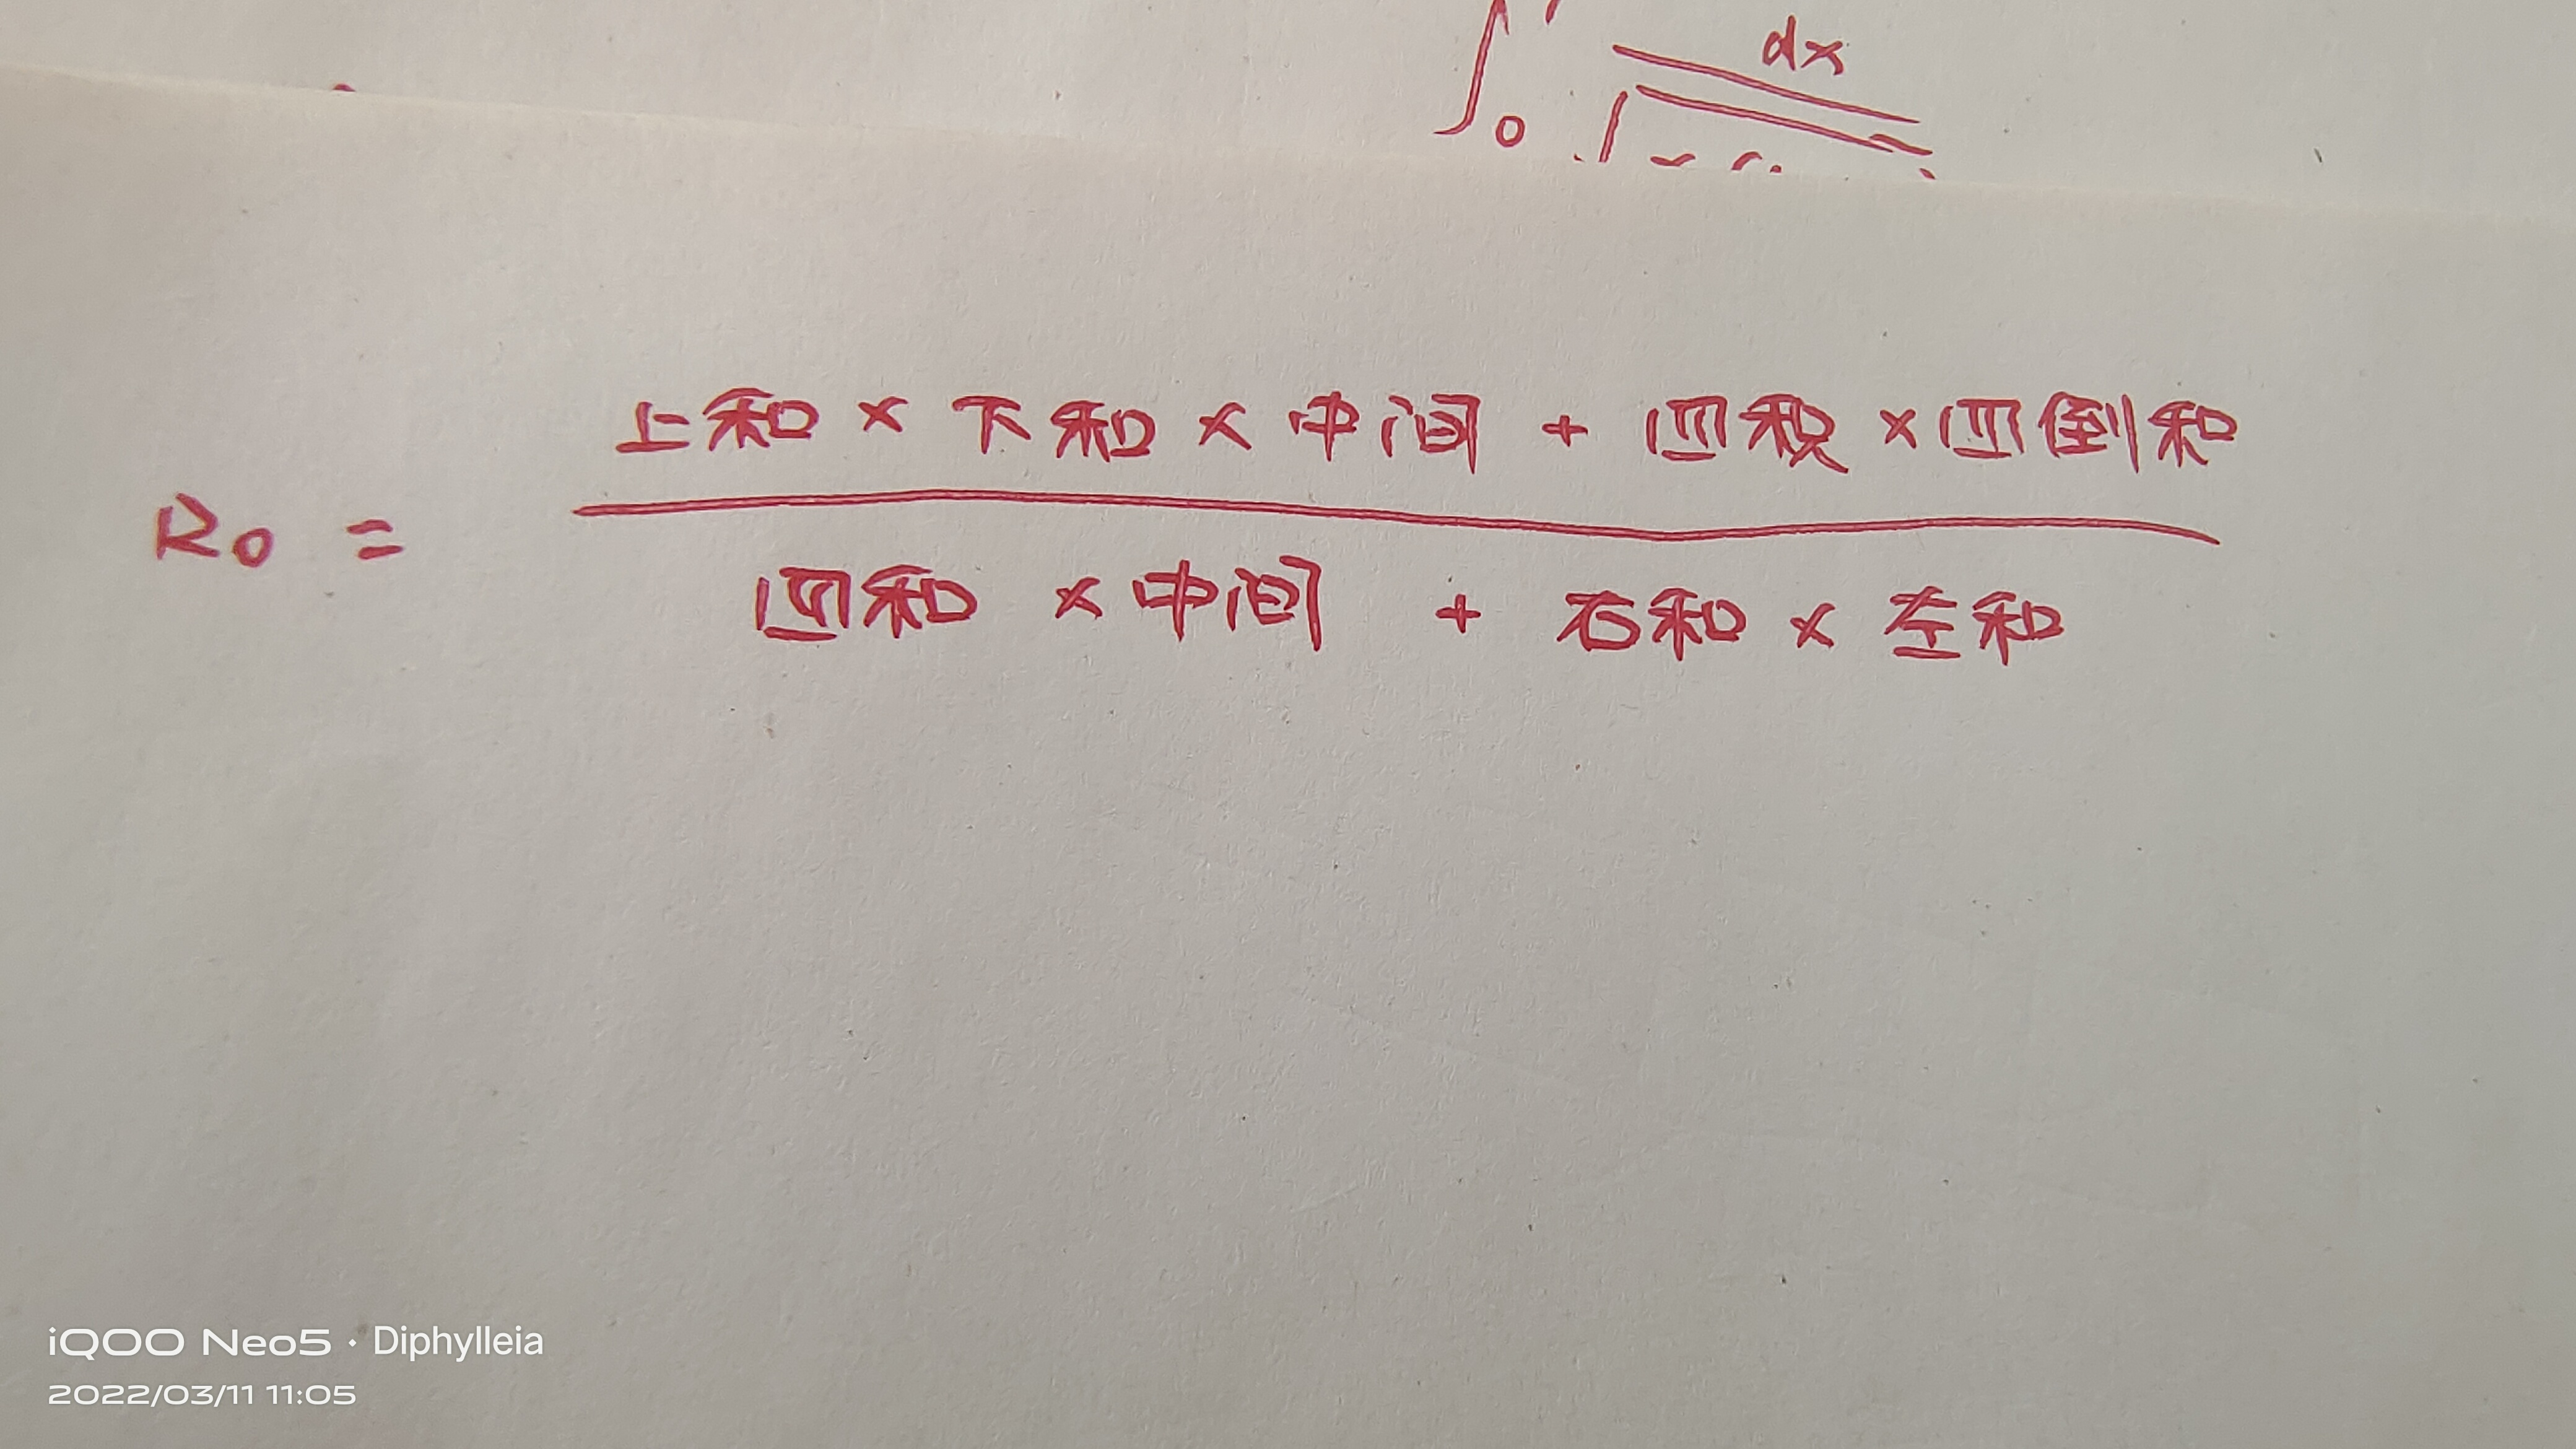 ∫₀ dx
R₀ =
上和 × 下和 × 中间 + 四积 × 四倒和
四和 × 中间 + 右和 × 左和
iQOO Neo5 · Diphylleia
2022/03/11 11:05